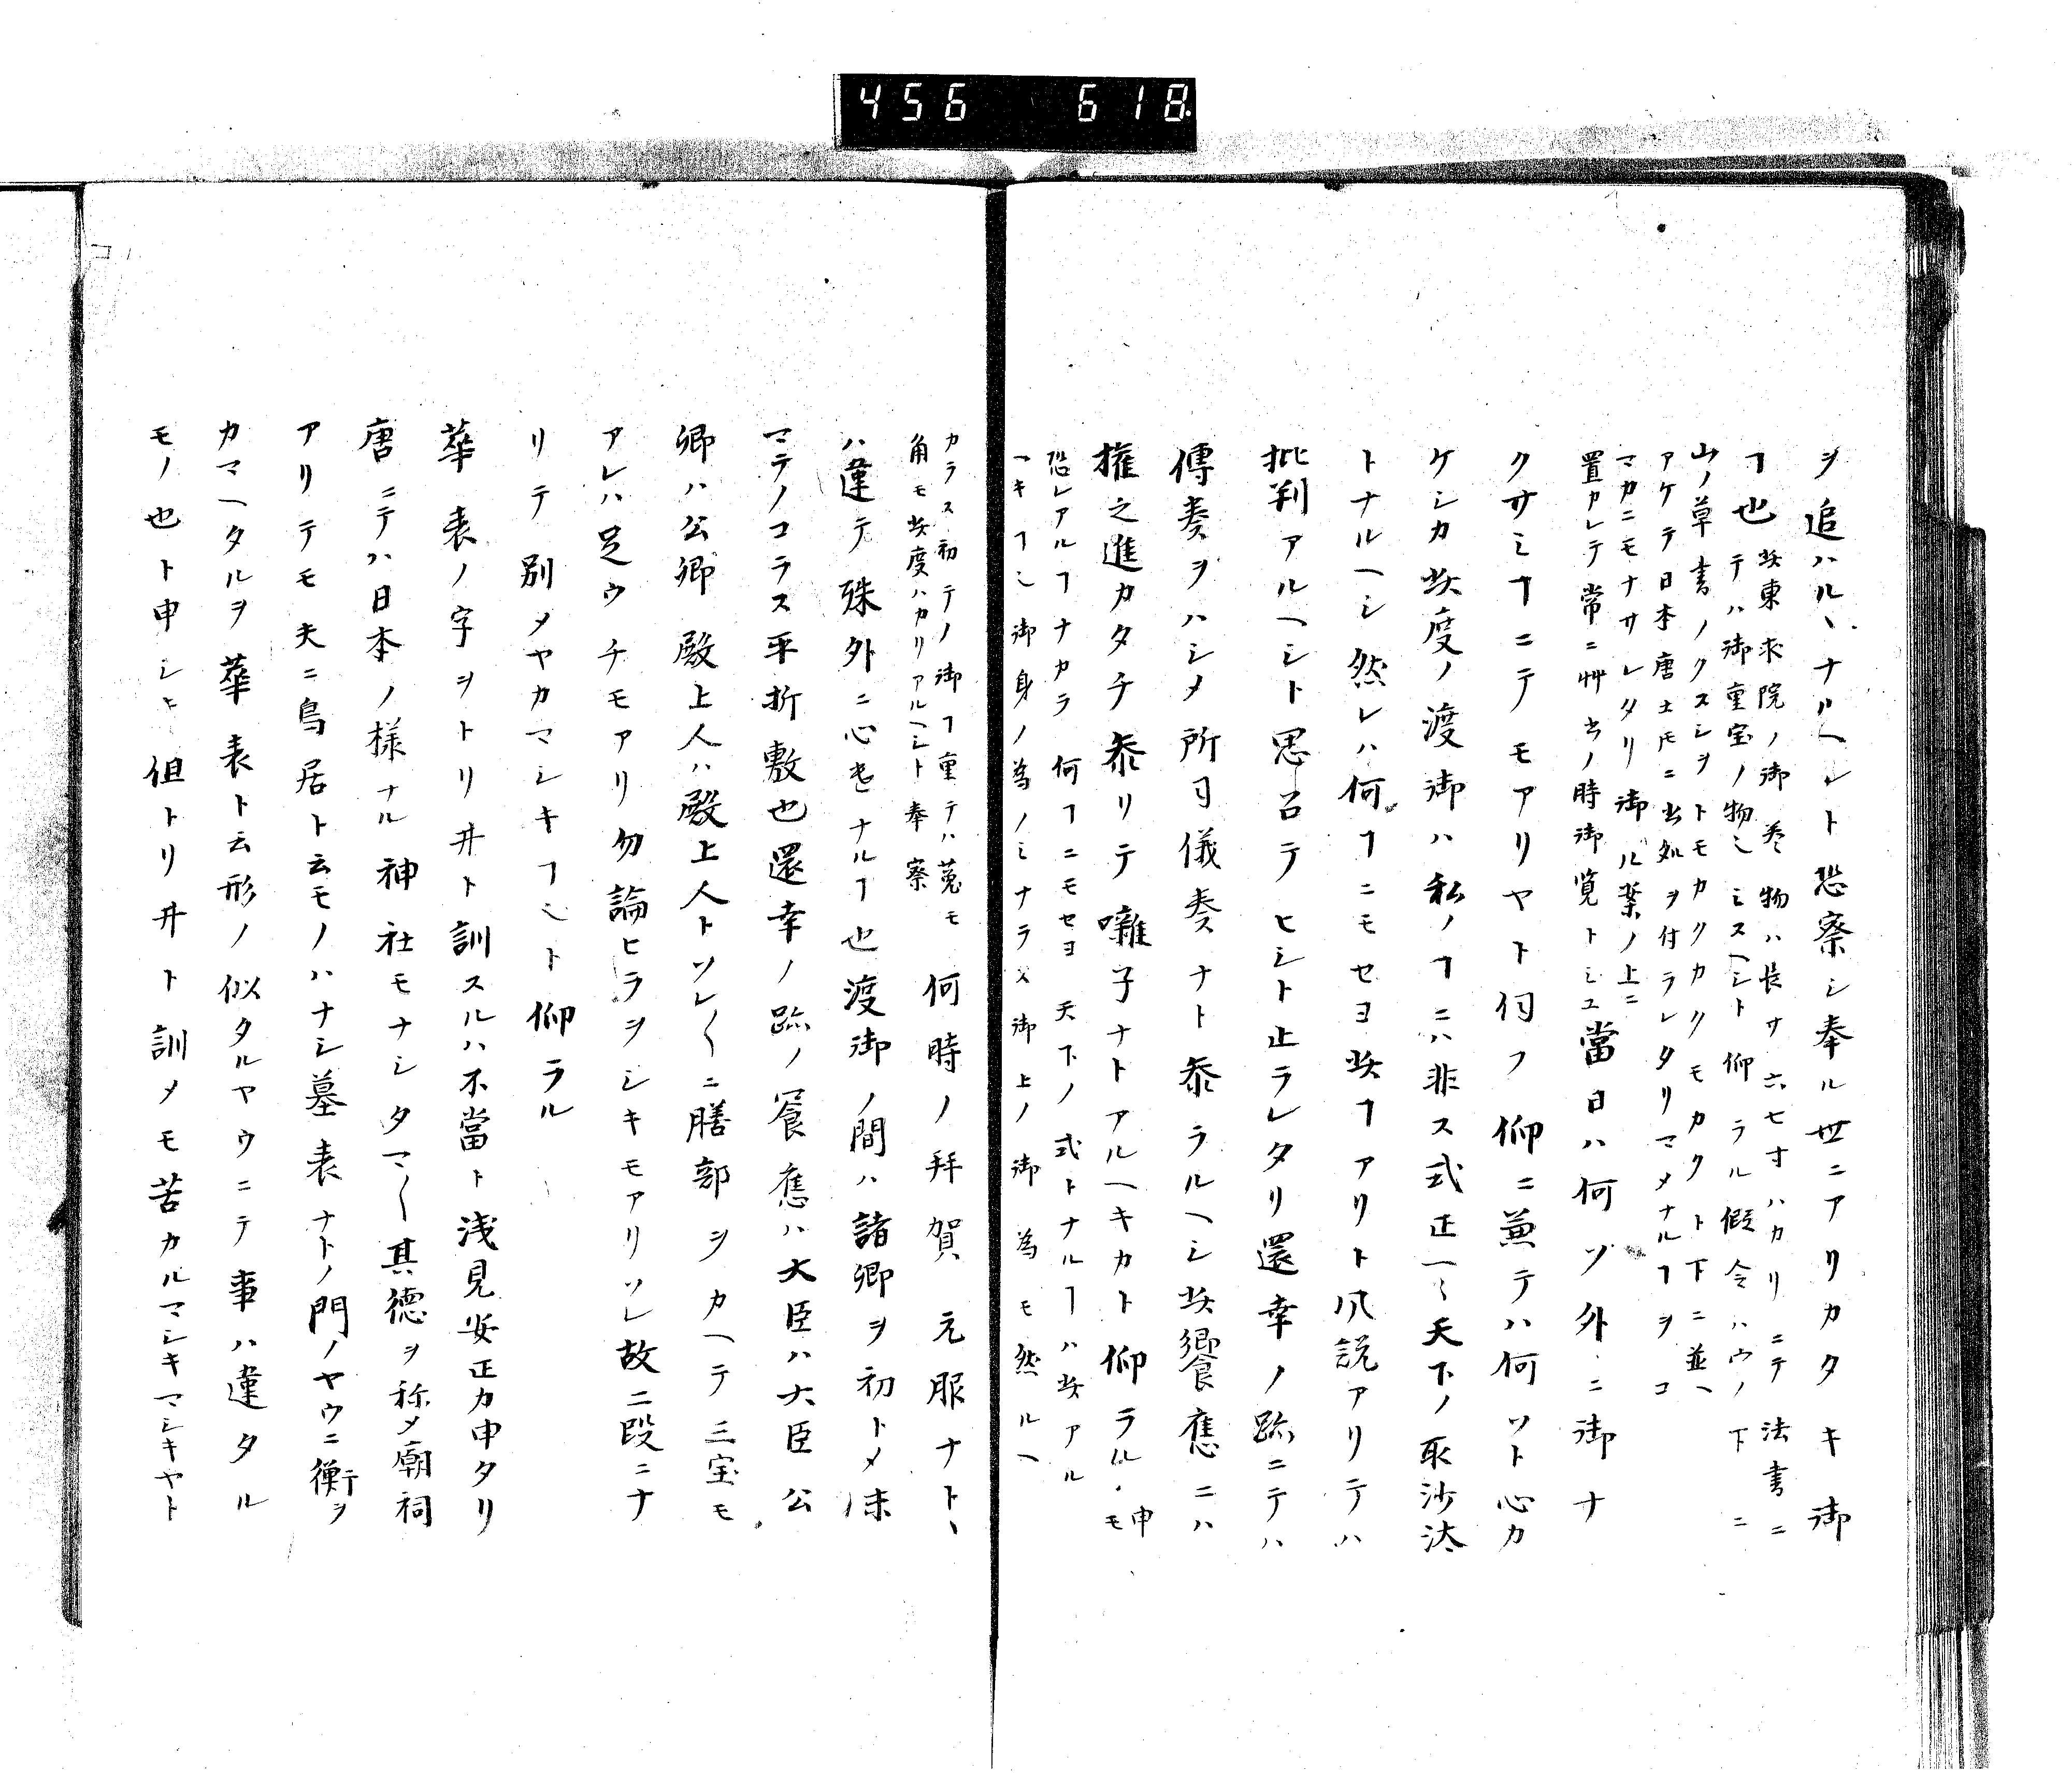 456 618
ヲ追ハル丶ナルヘシト恐察シ奉ル世ニアリカタキ御
ヿ也
此東求院ノ御巻物ハ長サ六七寸ハカリニテ法書ニ
テハ御重宝ノ物也ミスヘシト仰ラル假令ハウノ下ニ
山ノ草書ノクスシヲトモカクカクモカクト下ニ並ヘ
アケテ日本唐土トモニ出処ヲ付ラレタリマメナルヿヲコ
マカニモナサレタリ御几案ノ上ニ
置カレテ常ニ艸書ノ時御覧トミユ
當日ハ何ソ外ニ御ナ
クサミヿニテモアリヤト伺フ仰ニ兼テハ何ソト心カ
ケシカ此度ノ渡御ハ私ノヿニハ非ス式正ノ天下ノ取沙汰
トナルヘシ然レハ何ヿニモセヨ此ヿアリト风説アリテハ
批判アルヘシト思召テヒシト止ラレタリ還幸ノ跡ニテハ
傳奏ヲハシメ所司儀奏ナト参ラルヘシ此饗應ニハ
権之進カタチ参リテ囃子ナトアルヘキカト仰ラル
申モ
恐レアルヿナカラ何ヿニモセヨ天下ノ式トナルヿハ此アル
ヘキヿ也御身ノ為ノミナラス御上ノ御為モ然ルヘ
カラス初テノ御ヿ重テハ菟モ
角モ此度ハカリアルヘシト奉察
何時ノ拜賀元服ナト丶
ハ違テ殊外ニ心遣ナルヿ也渡御ノ間ハ諸卿ヲ初トメ末
マテノコラス平折敷也還幸ノ跡ノ饗應ハ大臣ハ大臣公
卿ハ公卿殿上人ハ殿上人トソレ〱ニ膳部ヲカヘテ三宝モ
アレハ足ウチモアリ勿論ヒラヲシキモアリソレ故ニ段ニナ
リテ別メヤカマシキヿ也ト仰ラル
華表ノ字ヲトリ井ト訓スルハ不當ト浅見安正カ申タリ
唐ニテハ日本ノ様ナル神社モナシタマ〱其徳ヲ称メ廟祠
アリテモ夫ニ鳥居ト云モノハナシ墓表ナトノ門ノヤウニ衡ヲ
カマヘタルヲ華表ト云形ノ似タルヤウニテ事ハ違タル
モノ也ト申シヒ但トリ井ト訓メモ苦カルマシキマシキヤト